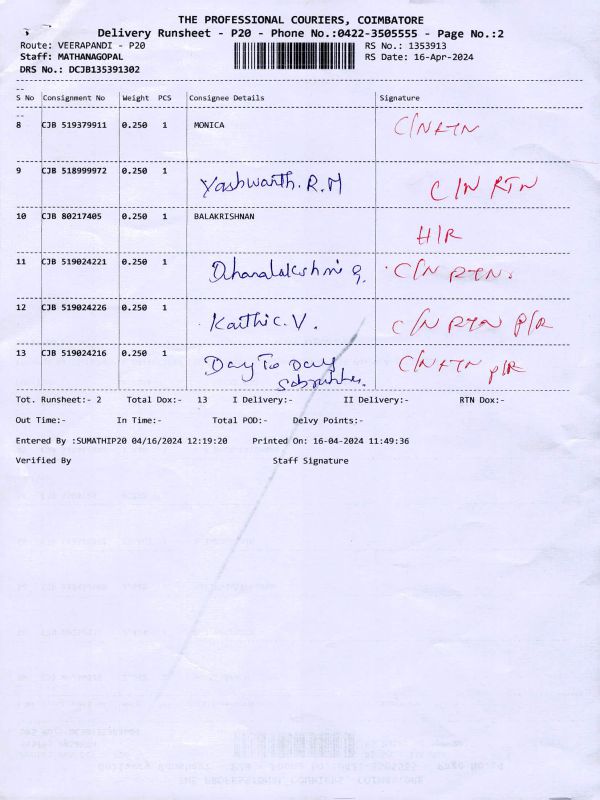 THE PROFESSIONAL COURIERS, COIMBATORE
Delivery Runsheet - P20 - Phone No.:0422-3505555 - Page No.:2
Route: VEERAPANDI - P20 RS No.: 1353913
Staff: MATHANAGOPAL RS Date: 16-Apr-2024
DRS No.: DCJB135391302
S No Consignment No Weight PCS Consignee Details Signature
8 CJB 519379911 0.250 1 MONICA C/N RTN
9 CJB 518999972 0.250 1 Yashwarth. R.M C/N RTN
10 CJB 80217405 0.250 1 BALAKRISHNAN H/R
11 CJB 519024221 0.250 1 Dhanalakshmi G. C/N RTN.
12 CJB 519024226 0.250 1 Karthic. V. C/N RTN P/R
13 CJB 519024216 0.250 1 Day To Day C/N RTN P/R
Tot. Runsheet:- 2 Total Dox:- 13 I Delivery:- II Delivery:- RTN Dox:-
Out Time:- In Time:- Total POD:- Delvy Points:-
Entered By :SUMATHIP20 04/16/2024 12:19:20 Printed On: 16-04-2024 11:49:36
Verified By Staff Signature